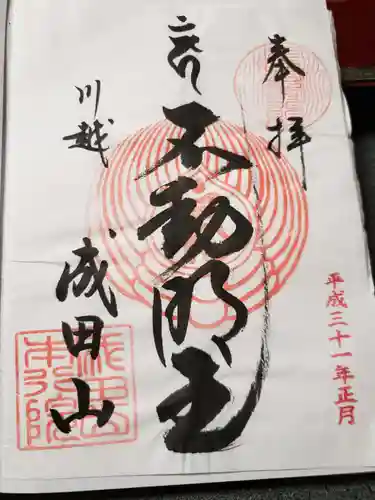 奉拝
平成三十一年正月
不動明王
川越
成田山